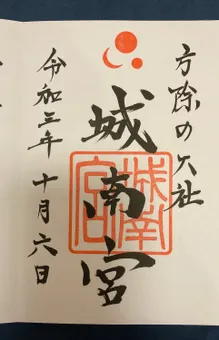 方除の大社
城南宮
城南宮
令和三年十月六日